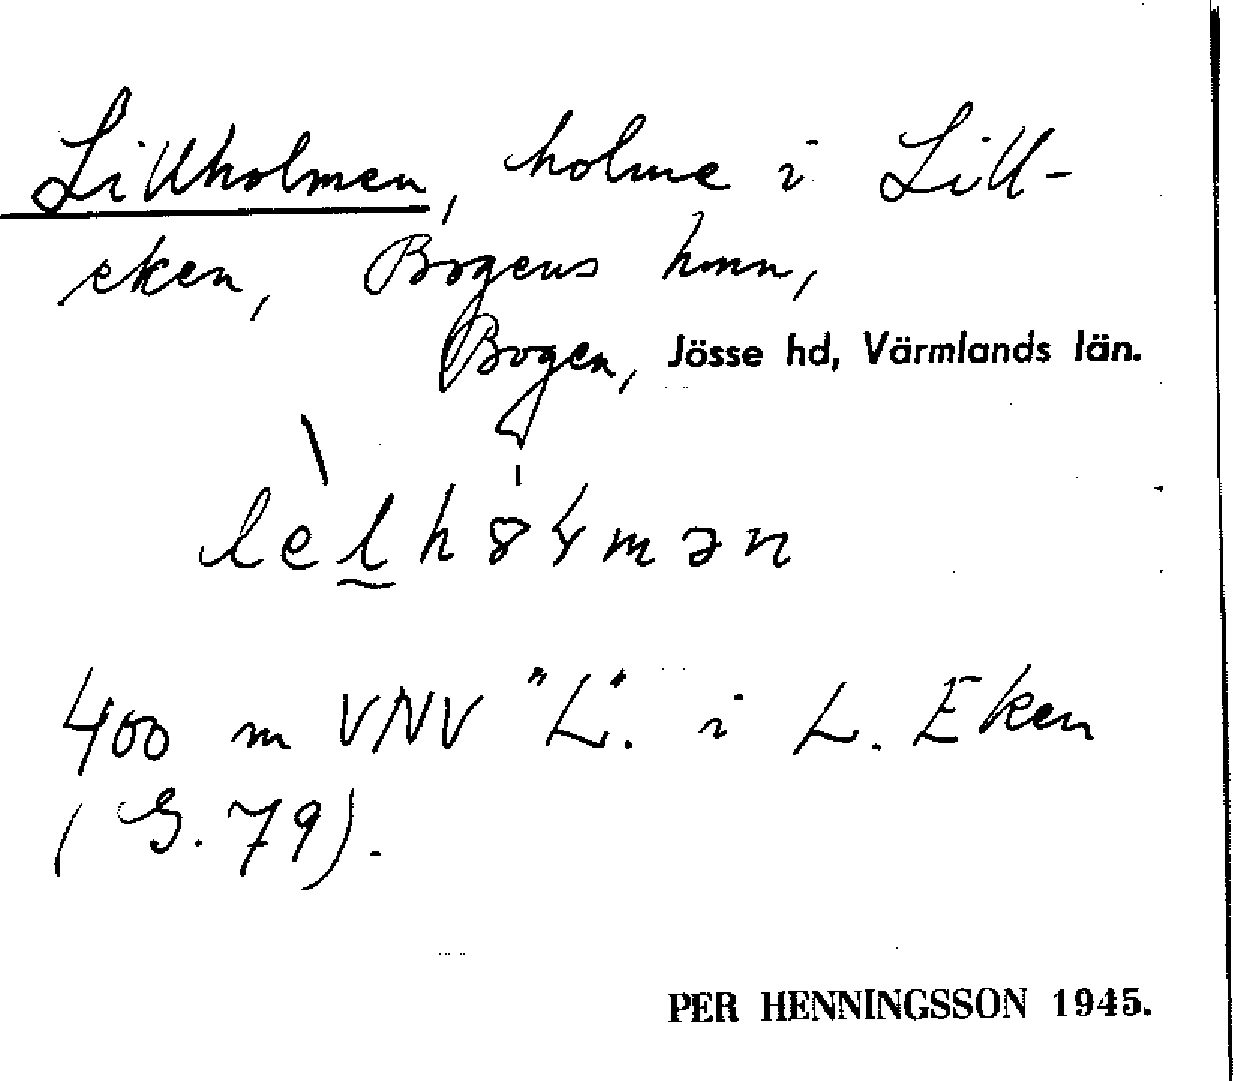 Lillholmen, holme i Lill-
eken, Bogens hmn,
Bogen, Jösse hd, Värmlands län.
lèlhȣɬmən
400 m VNV "L". i L. Eken
(S. 79).
PER HENNINGSSON 1945.